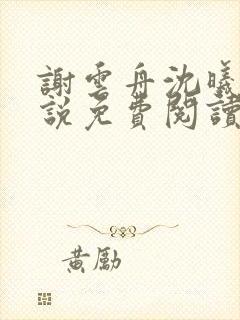 謝雲舟沈曦
說免費閱讀
黃勵